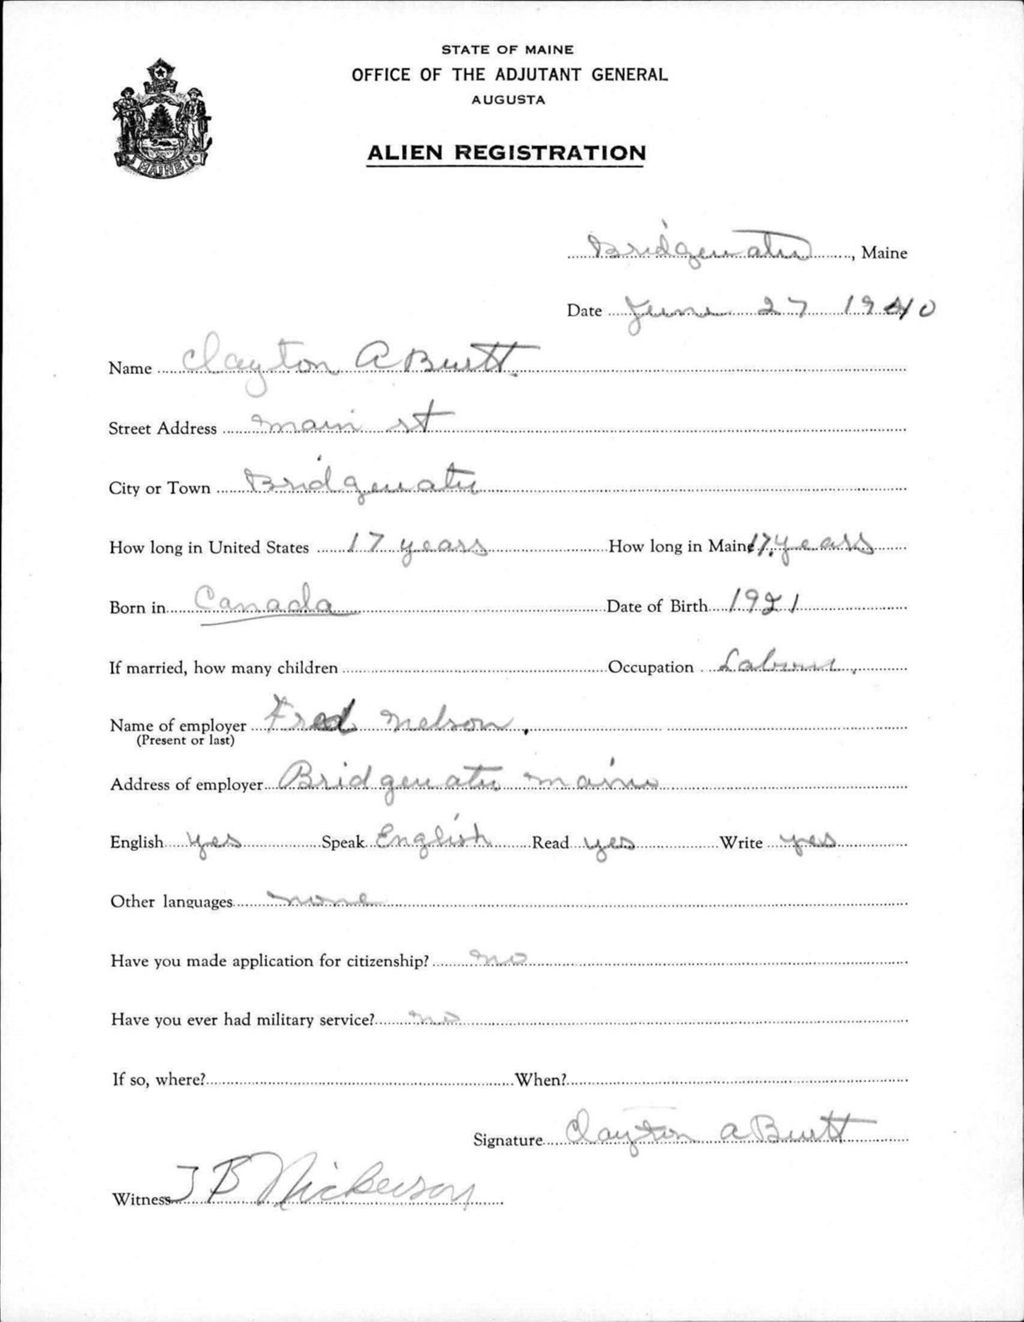 STATE OF MAINE
OFFICE OF THE ADJUTANT GENERAL
AUGUSTA
ALIEN REGISTRATION
MAINE
Bridgewater, Maine
Date June 27 1940
Name Clayton A Burtt.
Street Address Main st
City or Town Bridgewater
How long in United States 17 years How long in Maine 17 years
Born in Canada Date of Birth 1921
If married, how many children Occupation Laborer.
Name of employer Fred Nelson.
(Present or last)
Address of employer Bridgewater Maine
English yes Speak English Read yes Write yes
Other languages none
Have you made application for citizenship? no
Have you ever had military service? no
If so, where? When?
Signature Clayton A Burtt
Witness J B Nickerson